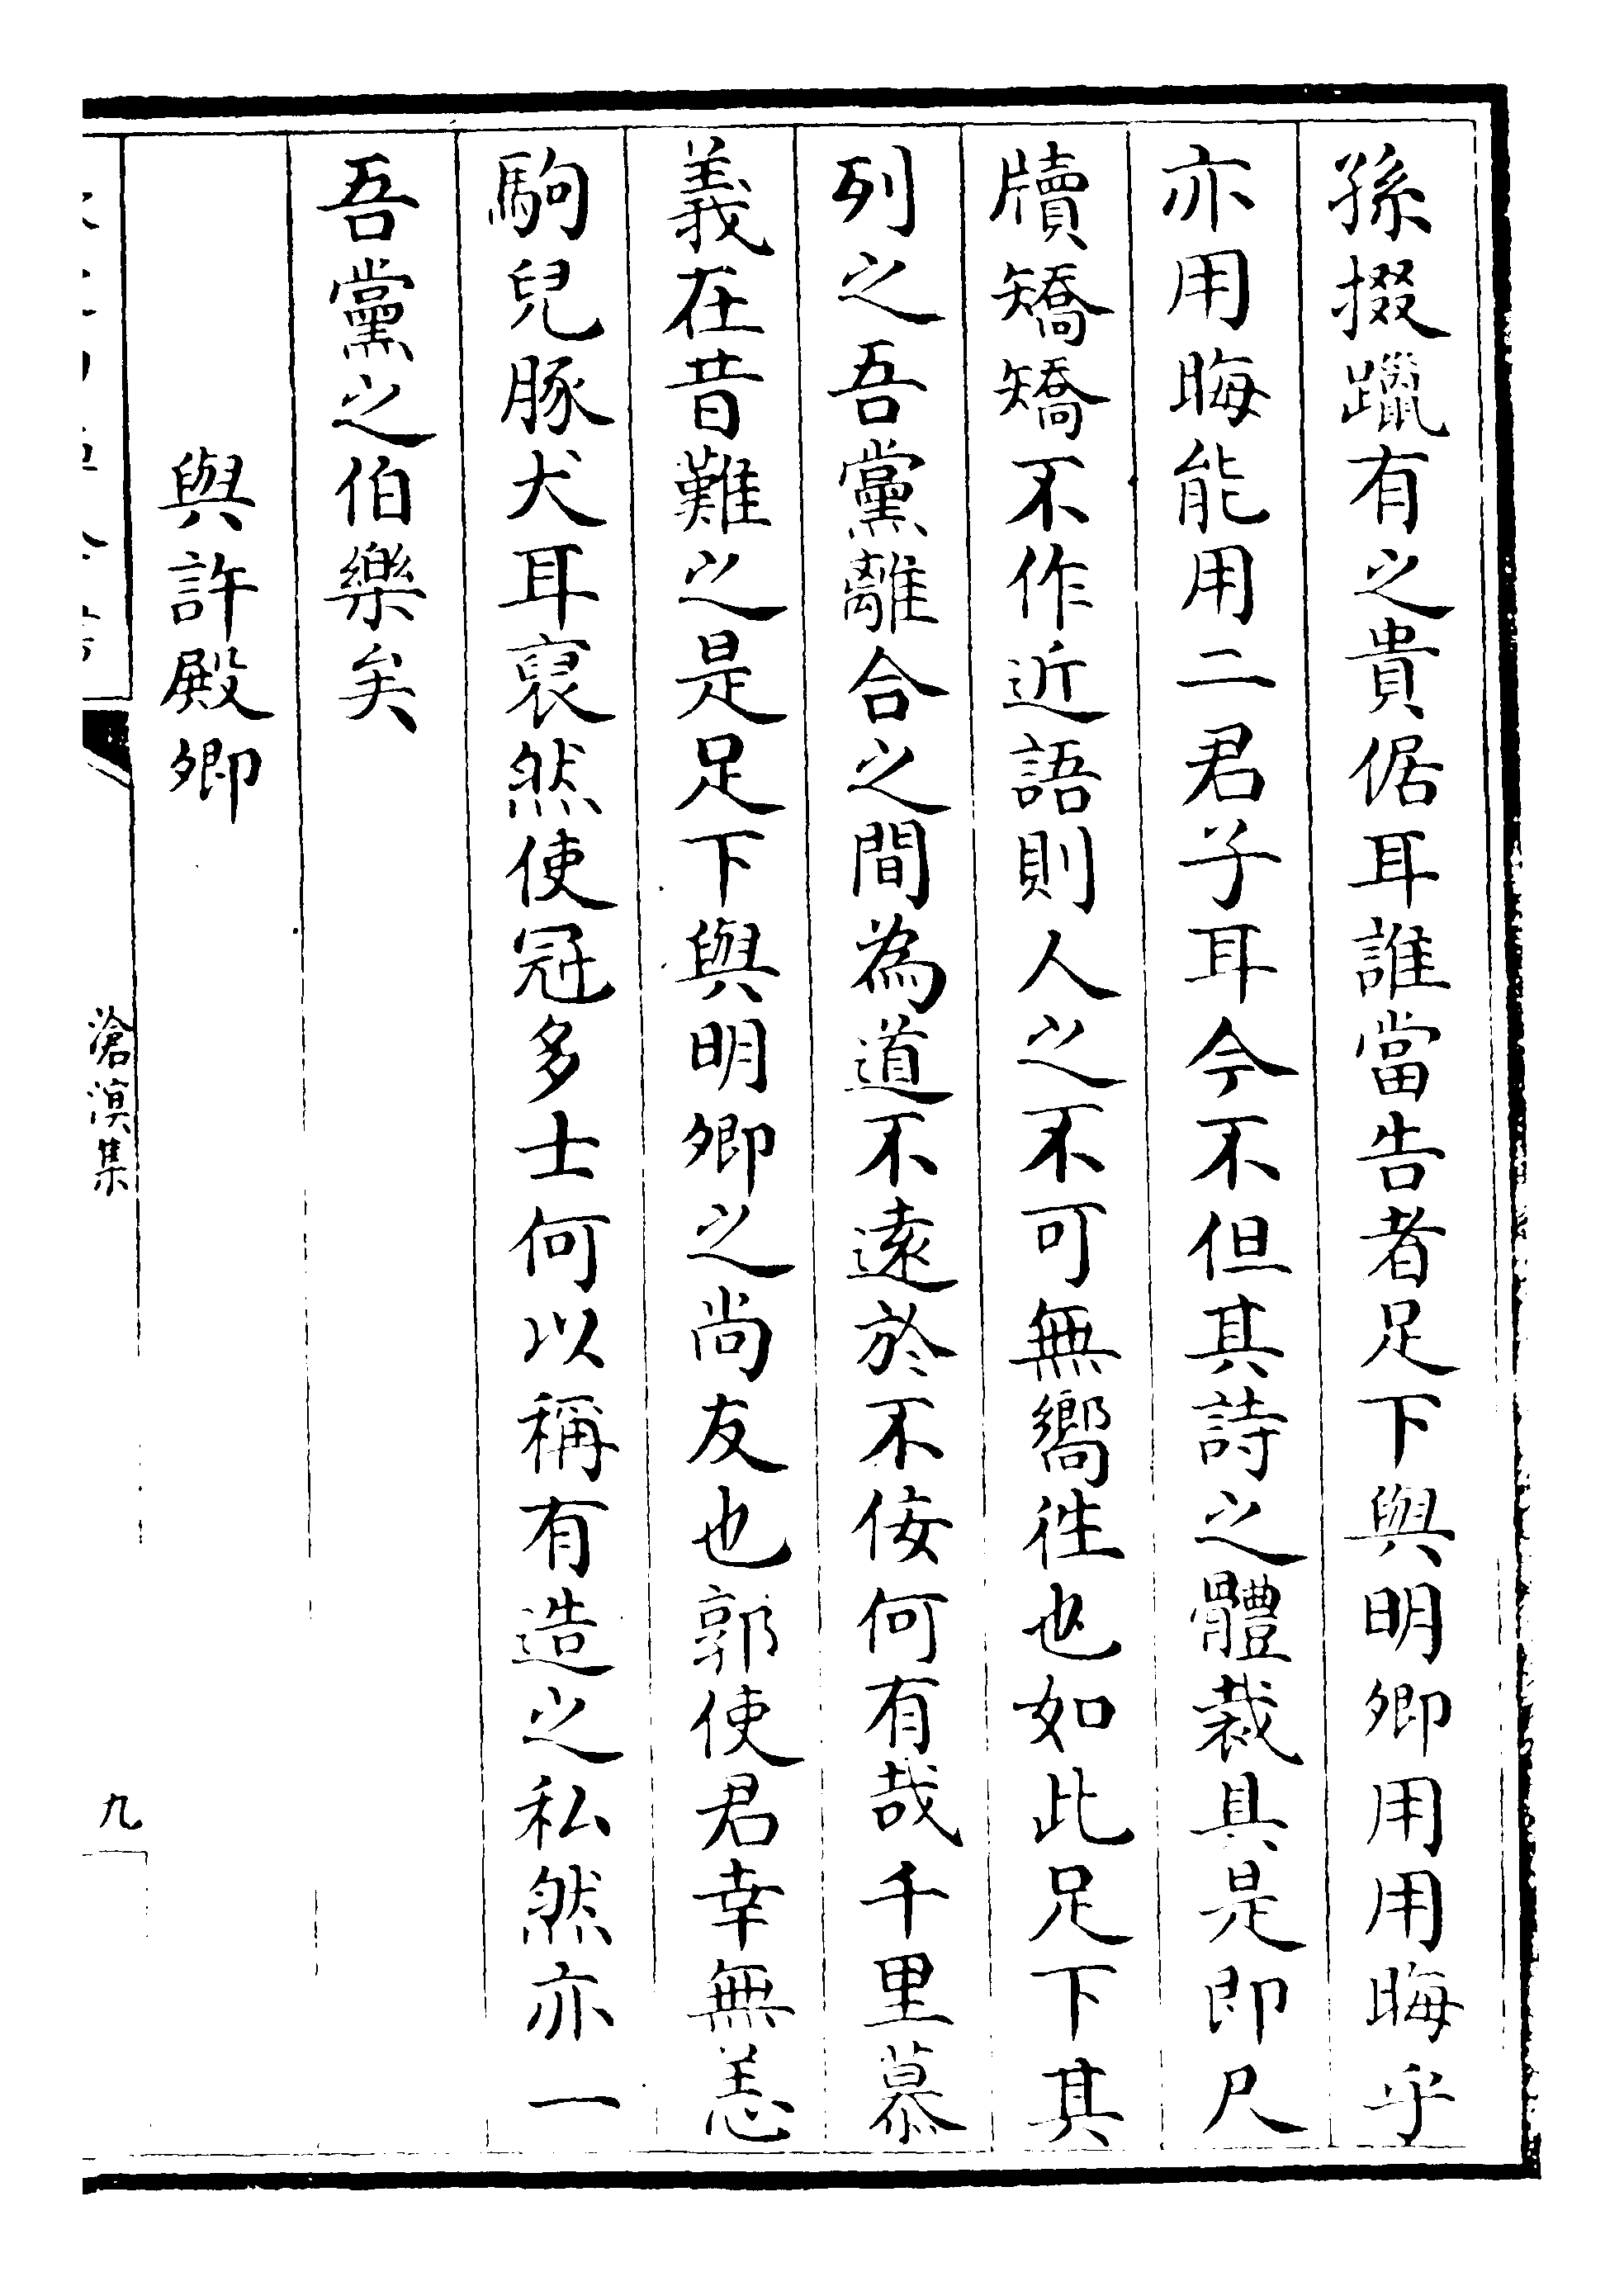 孫掇躐有之貴倨耳誰當告者足下與明卿用用晦乎
亦用晦能用二君子耳今不但其詩之體裁具是即尺
牘矯矯不作近語則人之不可無嚮徃也如此足下其
列之吾黨離合之間為道不遠於不佞何有哉千里慕
義在昔難之是足下與明卿之尚友也郭使君幸無恙
駒兒豚犬耳裒然使冠多士何以稱有造之私然亦一
吾黨之伯樂矣
與許殿卿
滄溟集
九